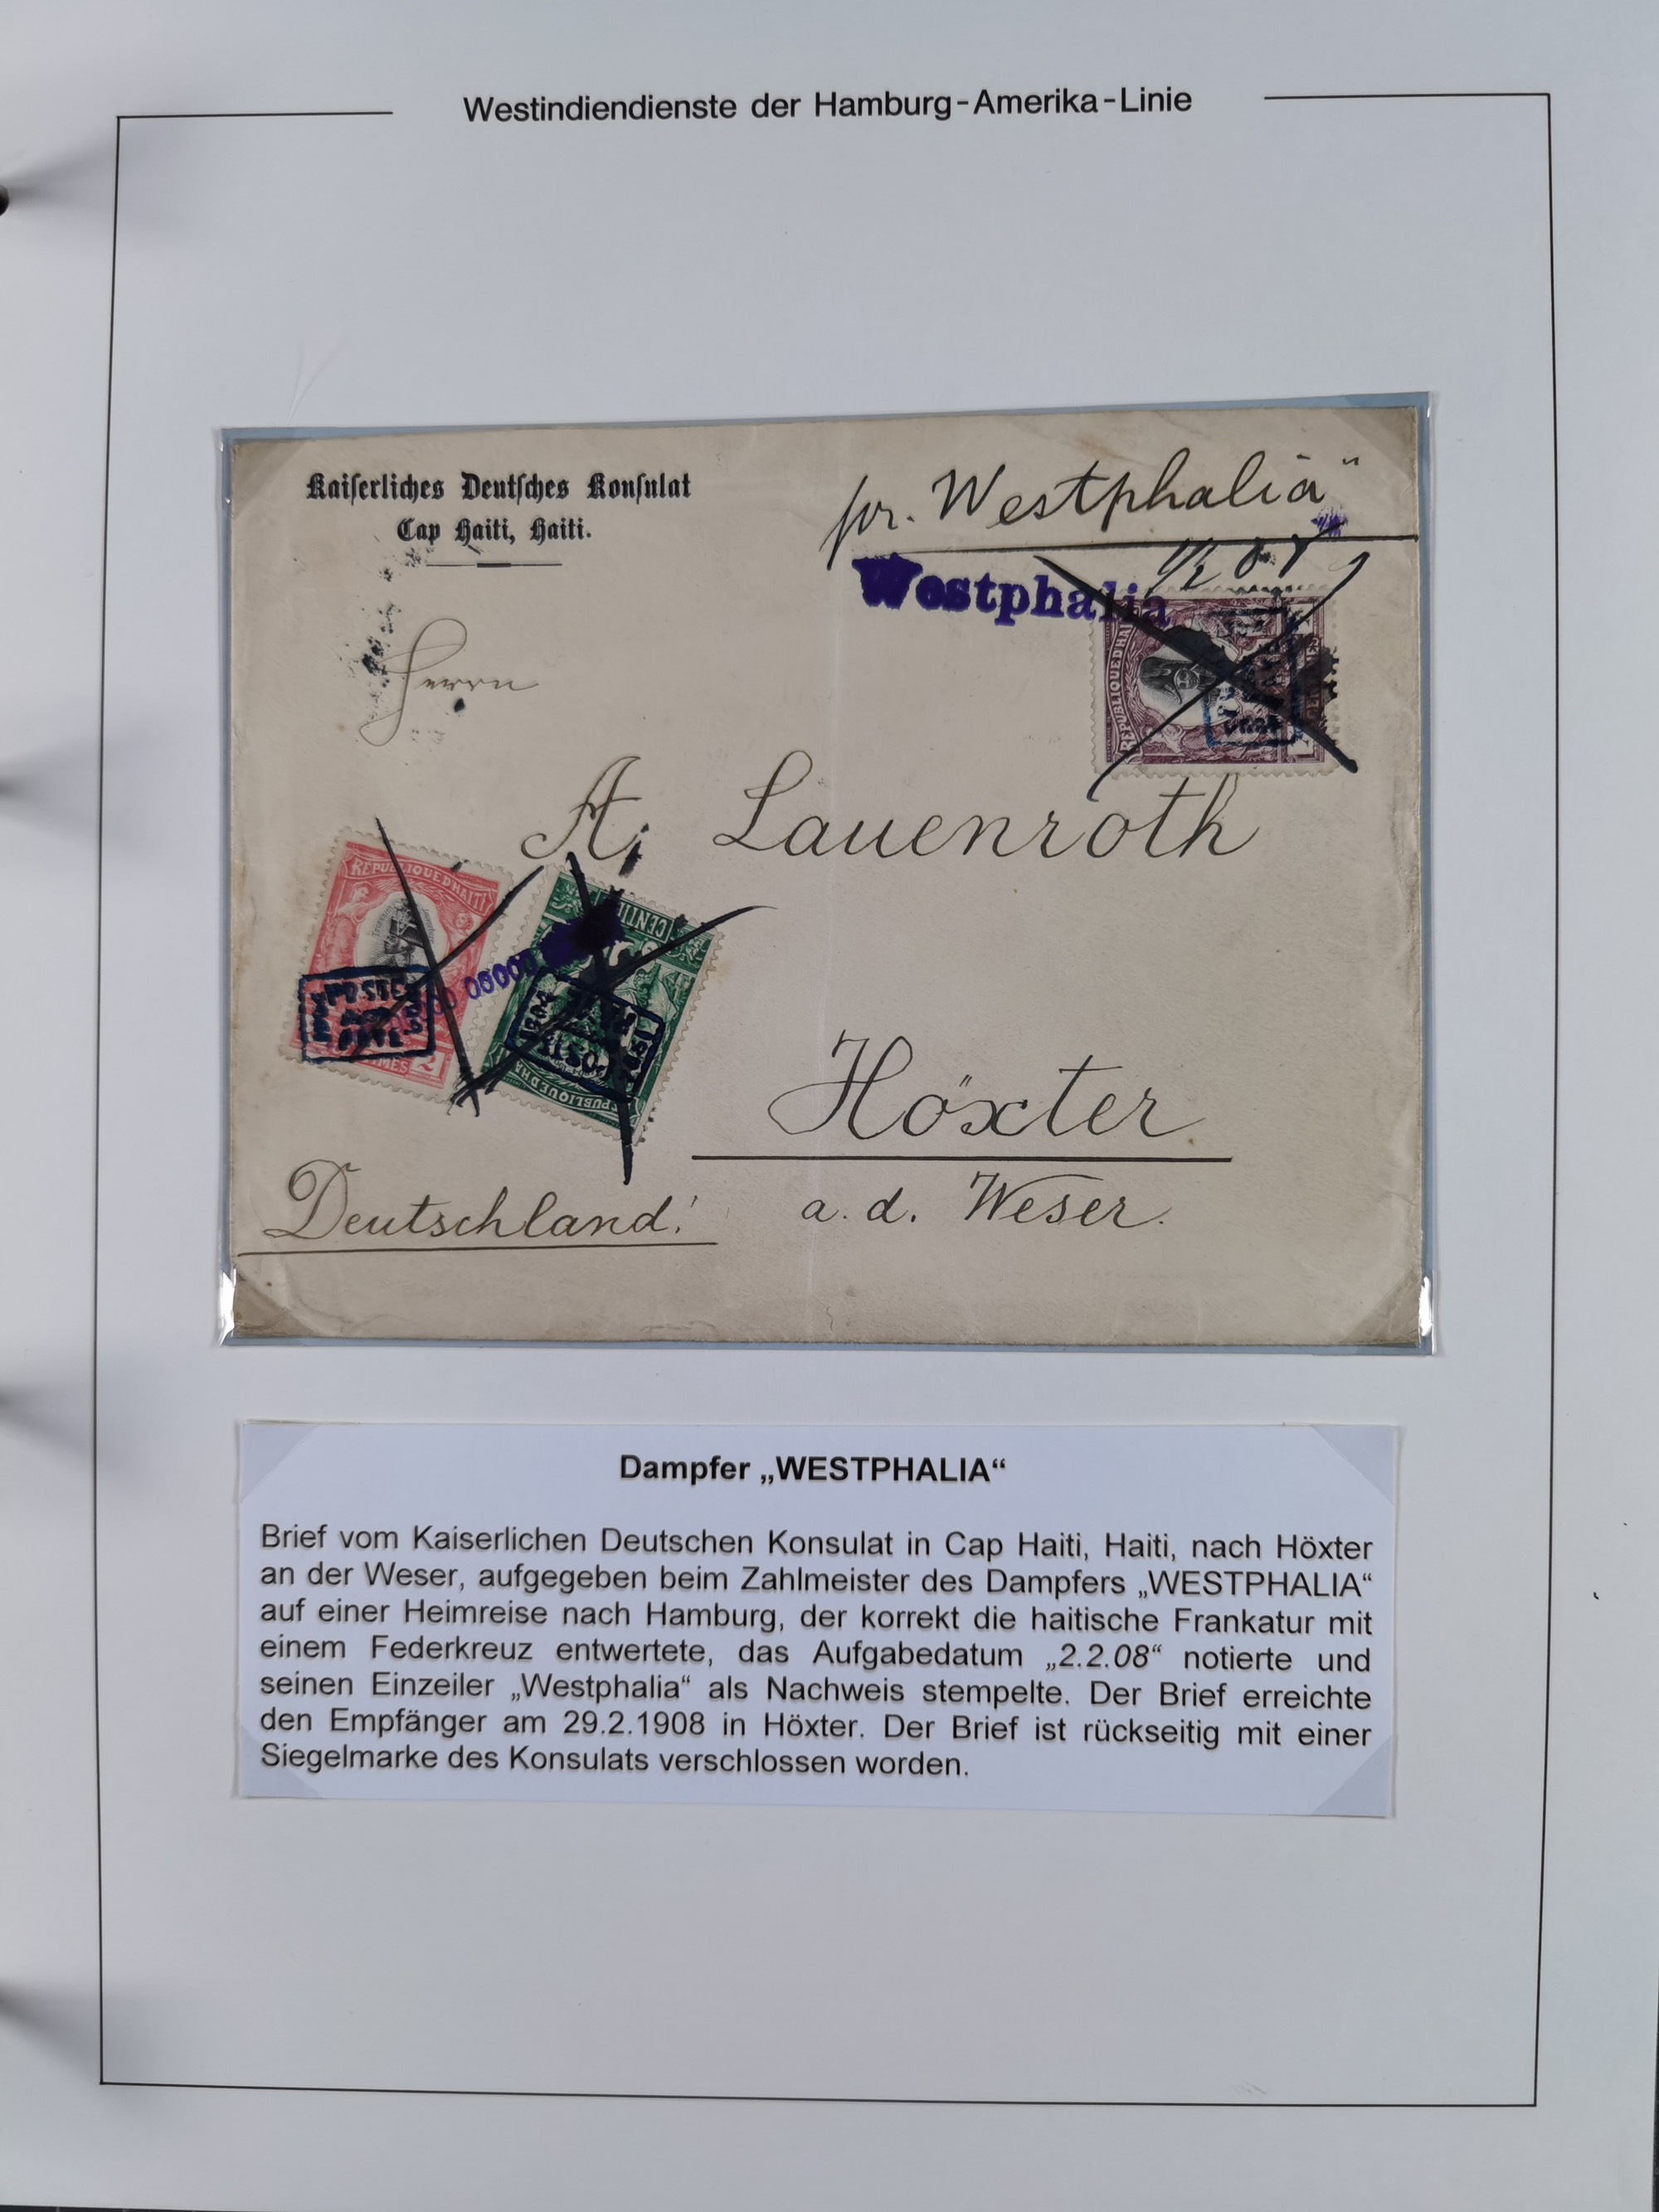 Westindiendienste der Hamburg-Amerika-Linie
Kaiserliches Deutsches Konsulat
Cap Haiti, Haiti.
pr. Westphalia"
Westphalia
Herrn
REPUBLIQUE D'HAITI
A. Lauenroth
REPUBLIQUE D'HAITI
POSTE
PAYE
2
CENTI
REPUBLIQUE D'HA
Höxter
a. d. Weser.
Deutschland!
Dampfer „WESTPHALIA“
Brief vom Kaiserlichen Deutschen Konsulat in Cap Haiti, Haiti, nach Höxter
an der Weser, aufgegeben beim Zahlmeister des Dampfers „WESTPHALIA“
auf einer Heimreise nach Hamburg, der korrekt die haitische Frankatur mit
einem Federkreuz entwertete, das Aufgabedatum „2.2.08“ notierte und
seinen Einzeiler „Westphalia“ als Nachweis stempelte. Der Brief erreichte
den Empfänger am 29.2.1908 in Höxter. Der Brief ist rückseitig mit einer
Siegelmarke des Konsulats verschlossen worden.